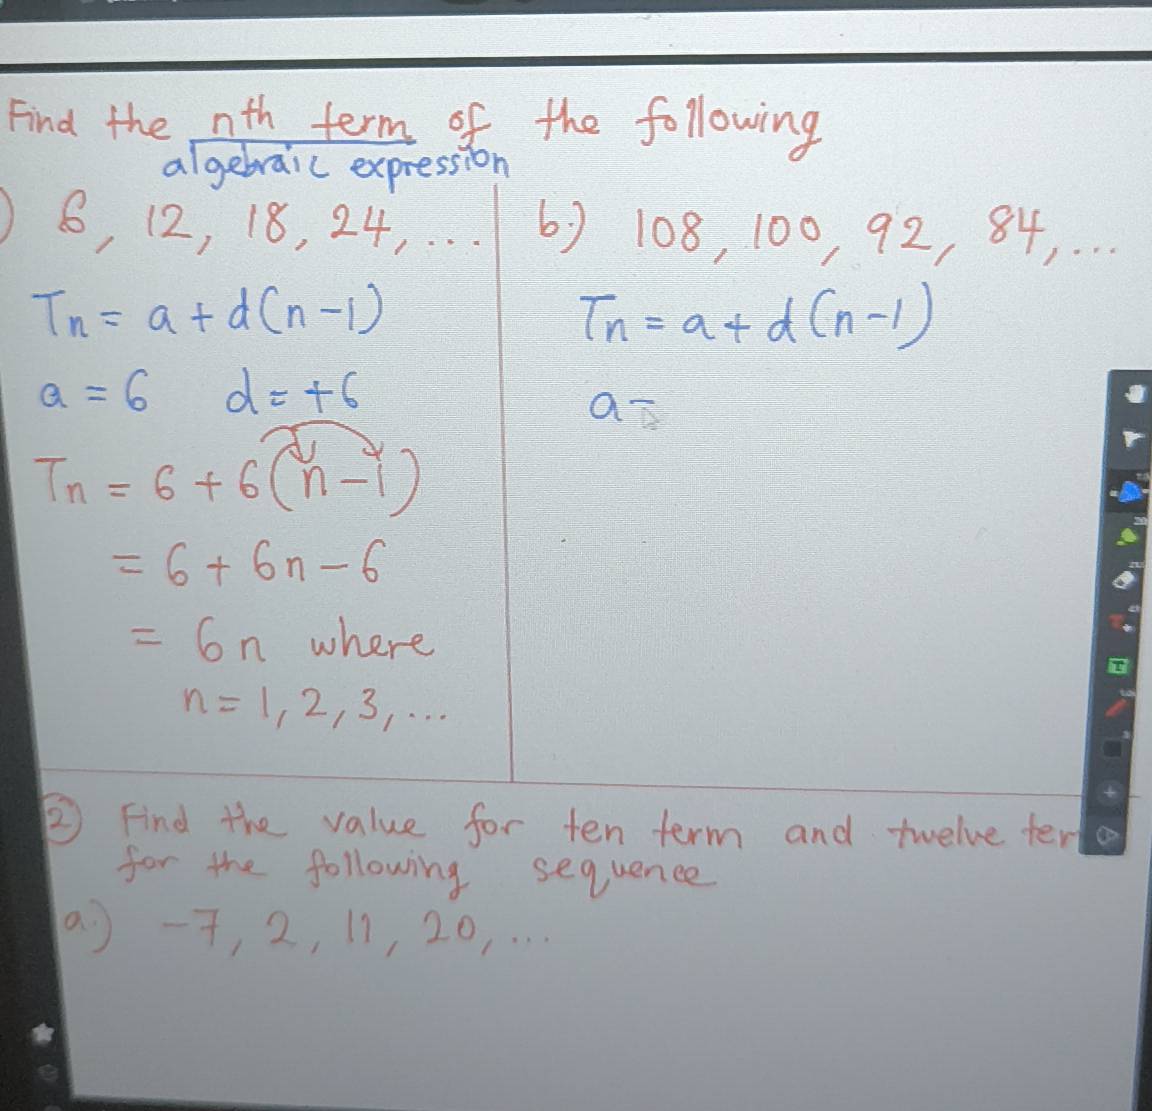 Find the nth term of the following
algebraic expression
) 6, 12, 18, 24, ...
Tn = a + d(n-1)
a = 6 d = +6
Tn = 6 + 6(n-1)
= 6 + 6n - 6
= 6n where
n = 1, 2, 3, ...
b.) 108, 100, 92, 84, ...
Tn = a + d(n-1)
a =
② Find the value for ten term and twelve ter
for the following sequence
a.) -7, 2, 11, 20, ...